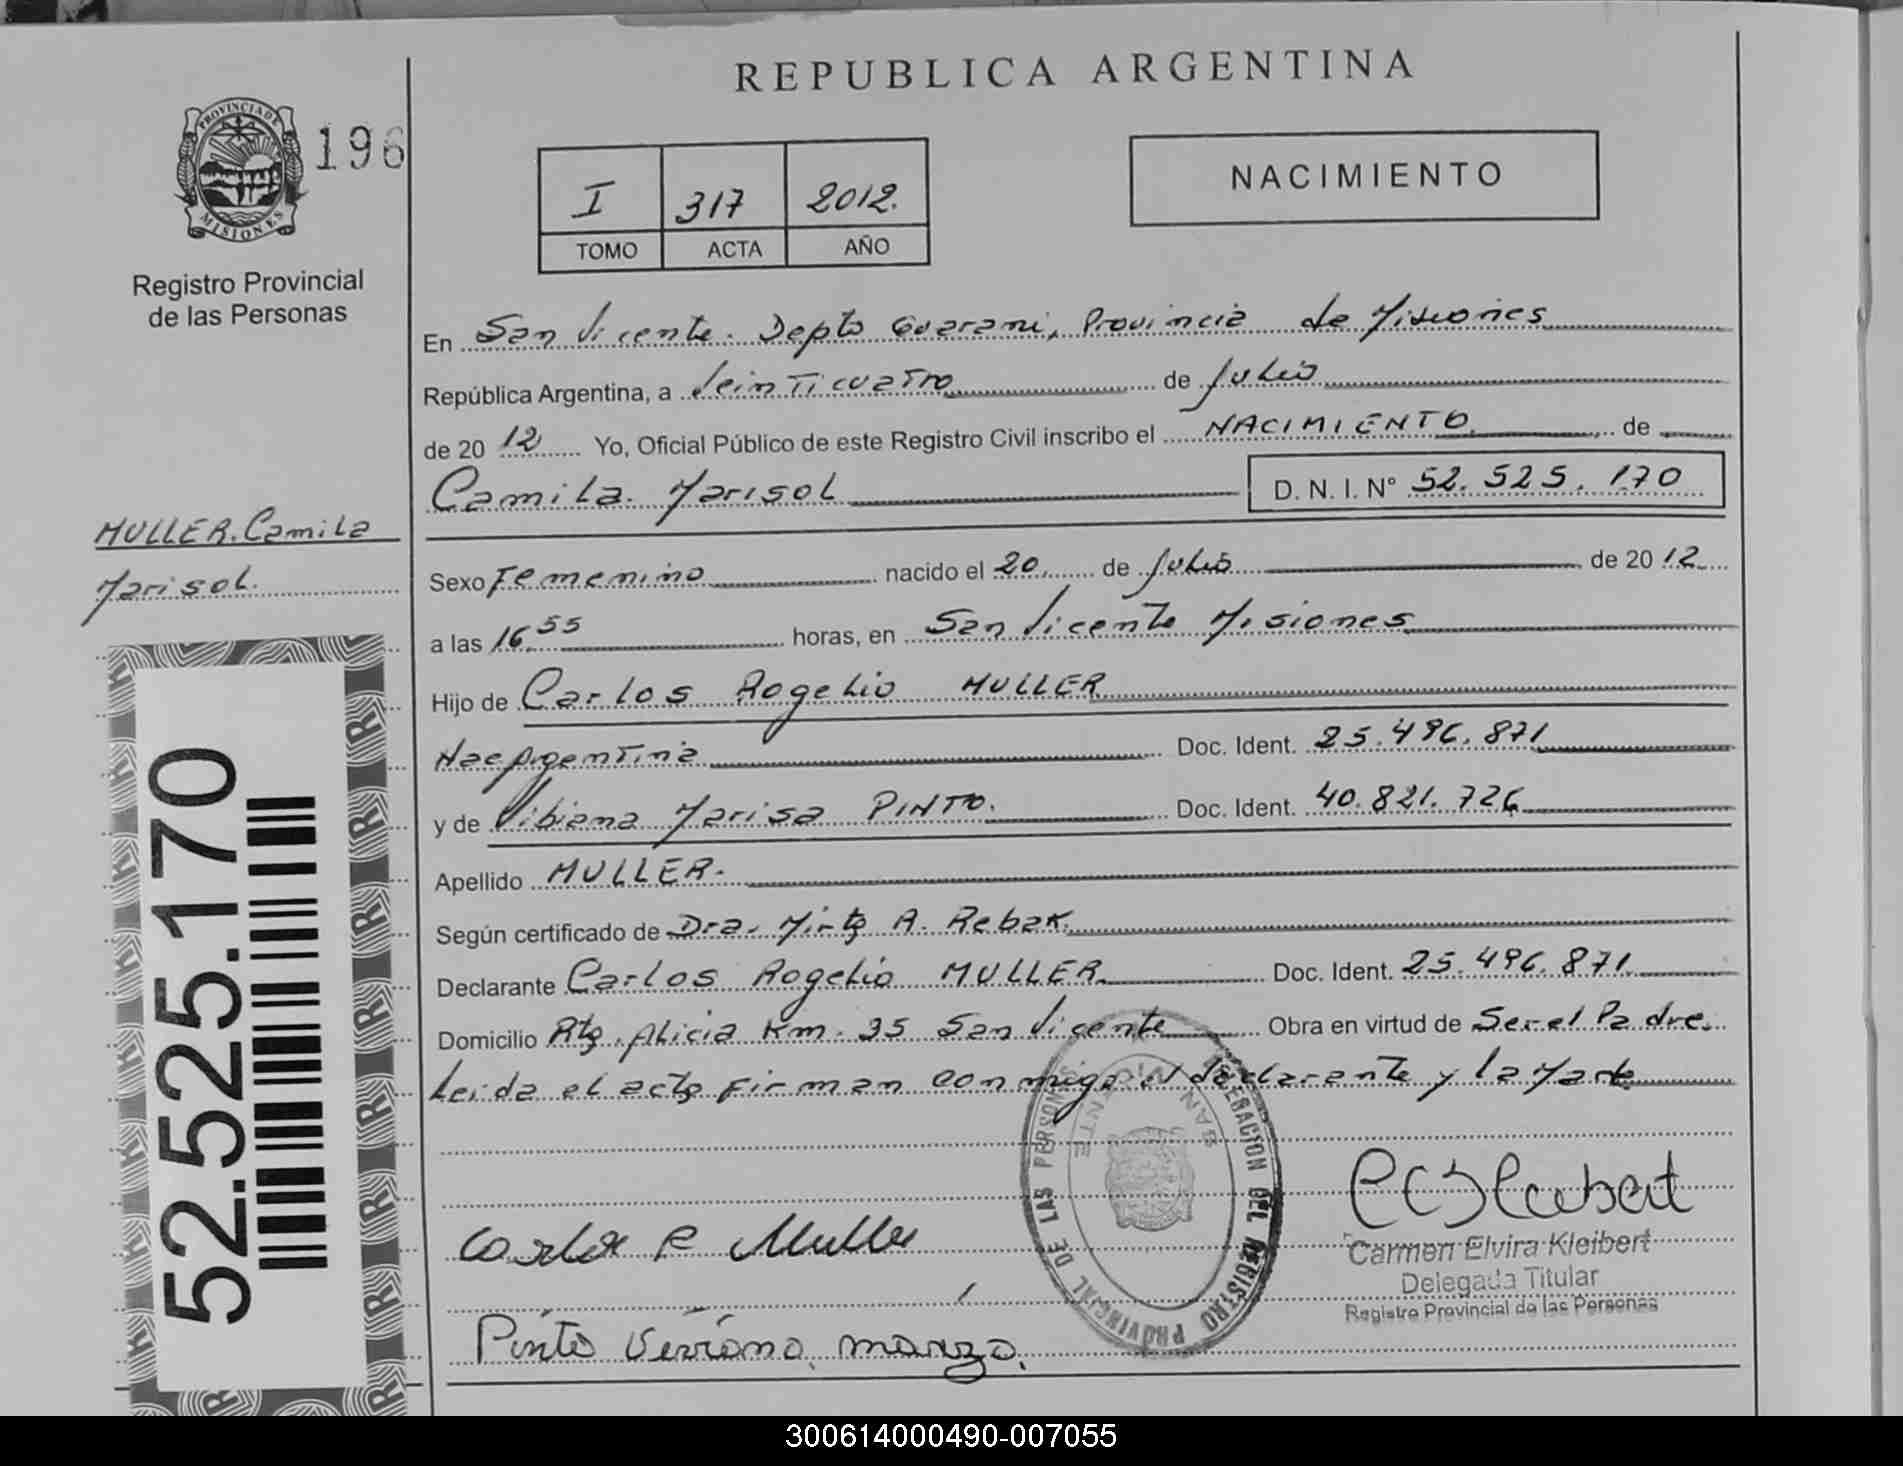 REPUBLICA ARGENTINA
PROVINCIA DE
MISIONES
196
Registro Provincial
de las Personas
I 317 2012.
TOMO ACTA AÑO
NACIMIENTO
En San Vicente. Depto Guarani, Provincia de Misiones
República Argentina, a Veinticuatro de Julio
de 20 12 Yo, Oficial Público de este Registro Civil inscribo el NACIMIENTO de
Camila Marisol D. N. I. N° 52.525.170
MULLER. Camila
Marisol.
Sexo Femenino nacido el 20 de Julio de 20 12
a las 16,55 horas, en San Vicente Misiones
Hijo de Carlos Rogelio MULLER
Nac Argentina Doc. Ident. 25.496.871
y de Vibiana Marisa PINTO. Doc. Ident. 40.821.726
Apellido MULLER.
Según certificado de Dra. Mirta A. Rebak.
Declarante Carlos Rogelio MULLER Doc. Ident. 25.496.871
Domicilio Rta. Alicia Km. 35 San Vicente Obra en virtud de Ser el Padre.
Leida el acta firman conmigo el declarante y la
52.525.170
DELEGACION DEL REGISTRO PROVINCIAL DE LAS PERSONAS
SAN VICENTE
Carlos R Muller
Pinto
Carmen Elvira Kleibert
Delegada Titular
Registro Provincial de las Personas
300614000490-007055